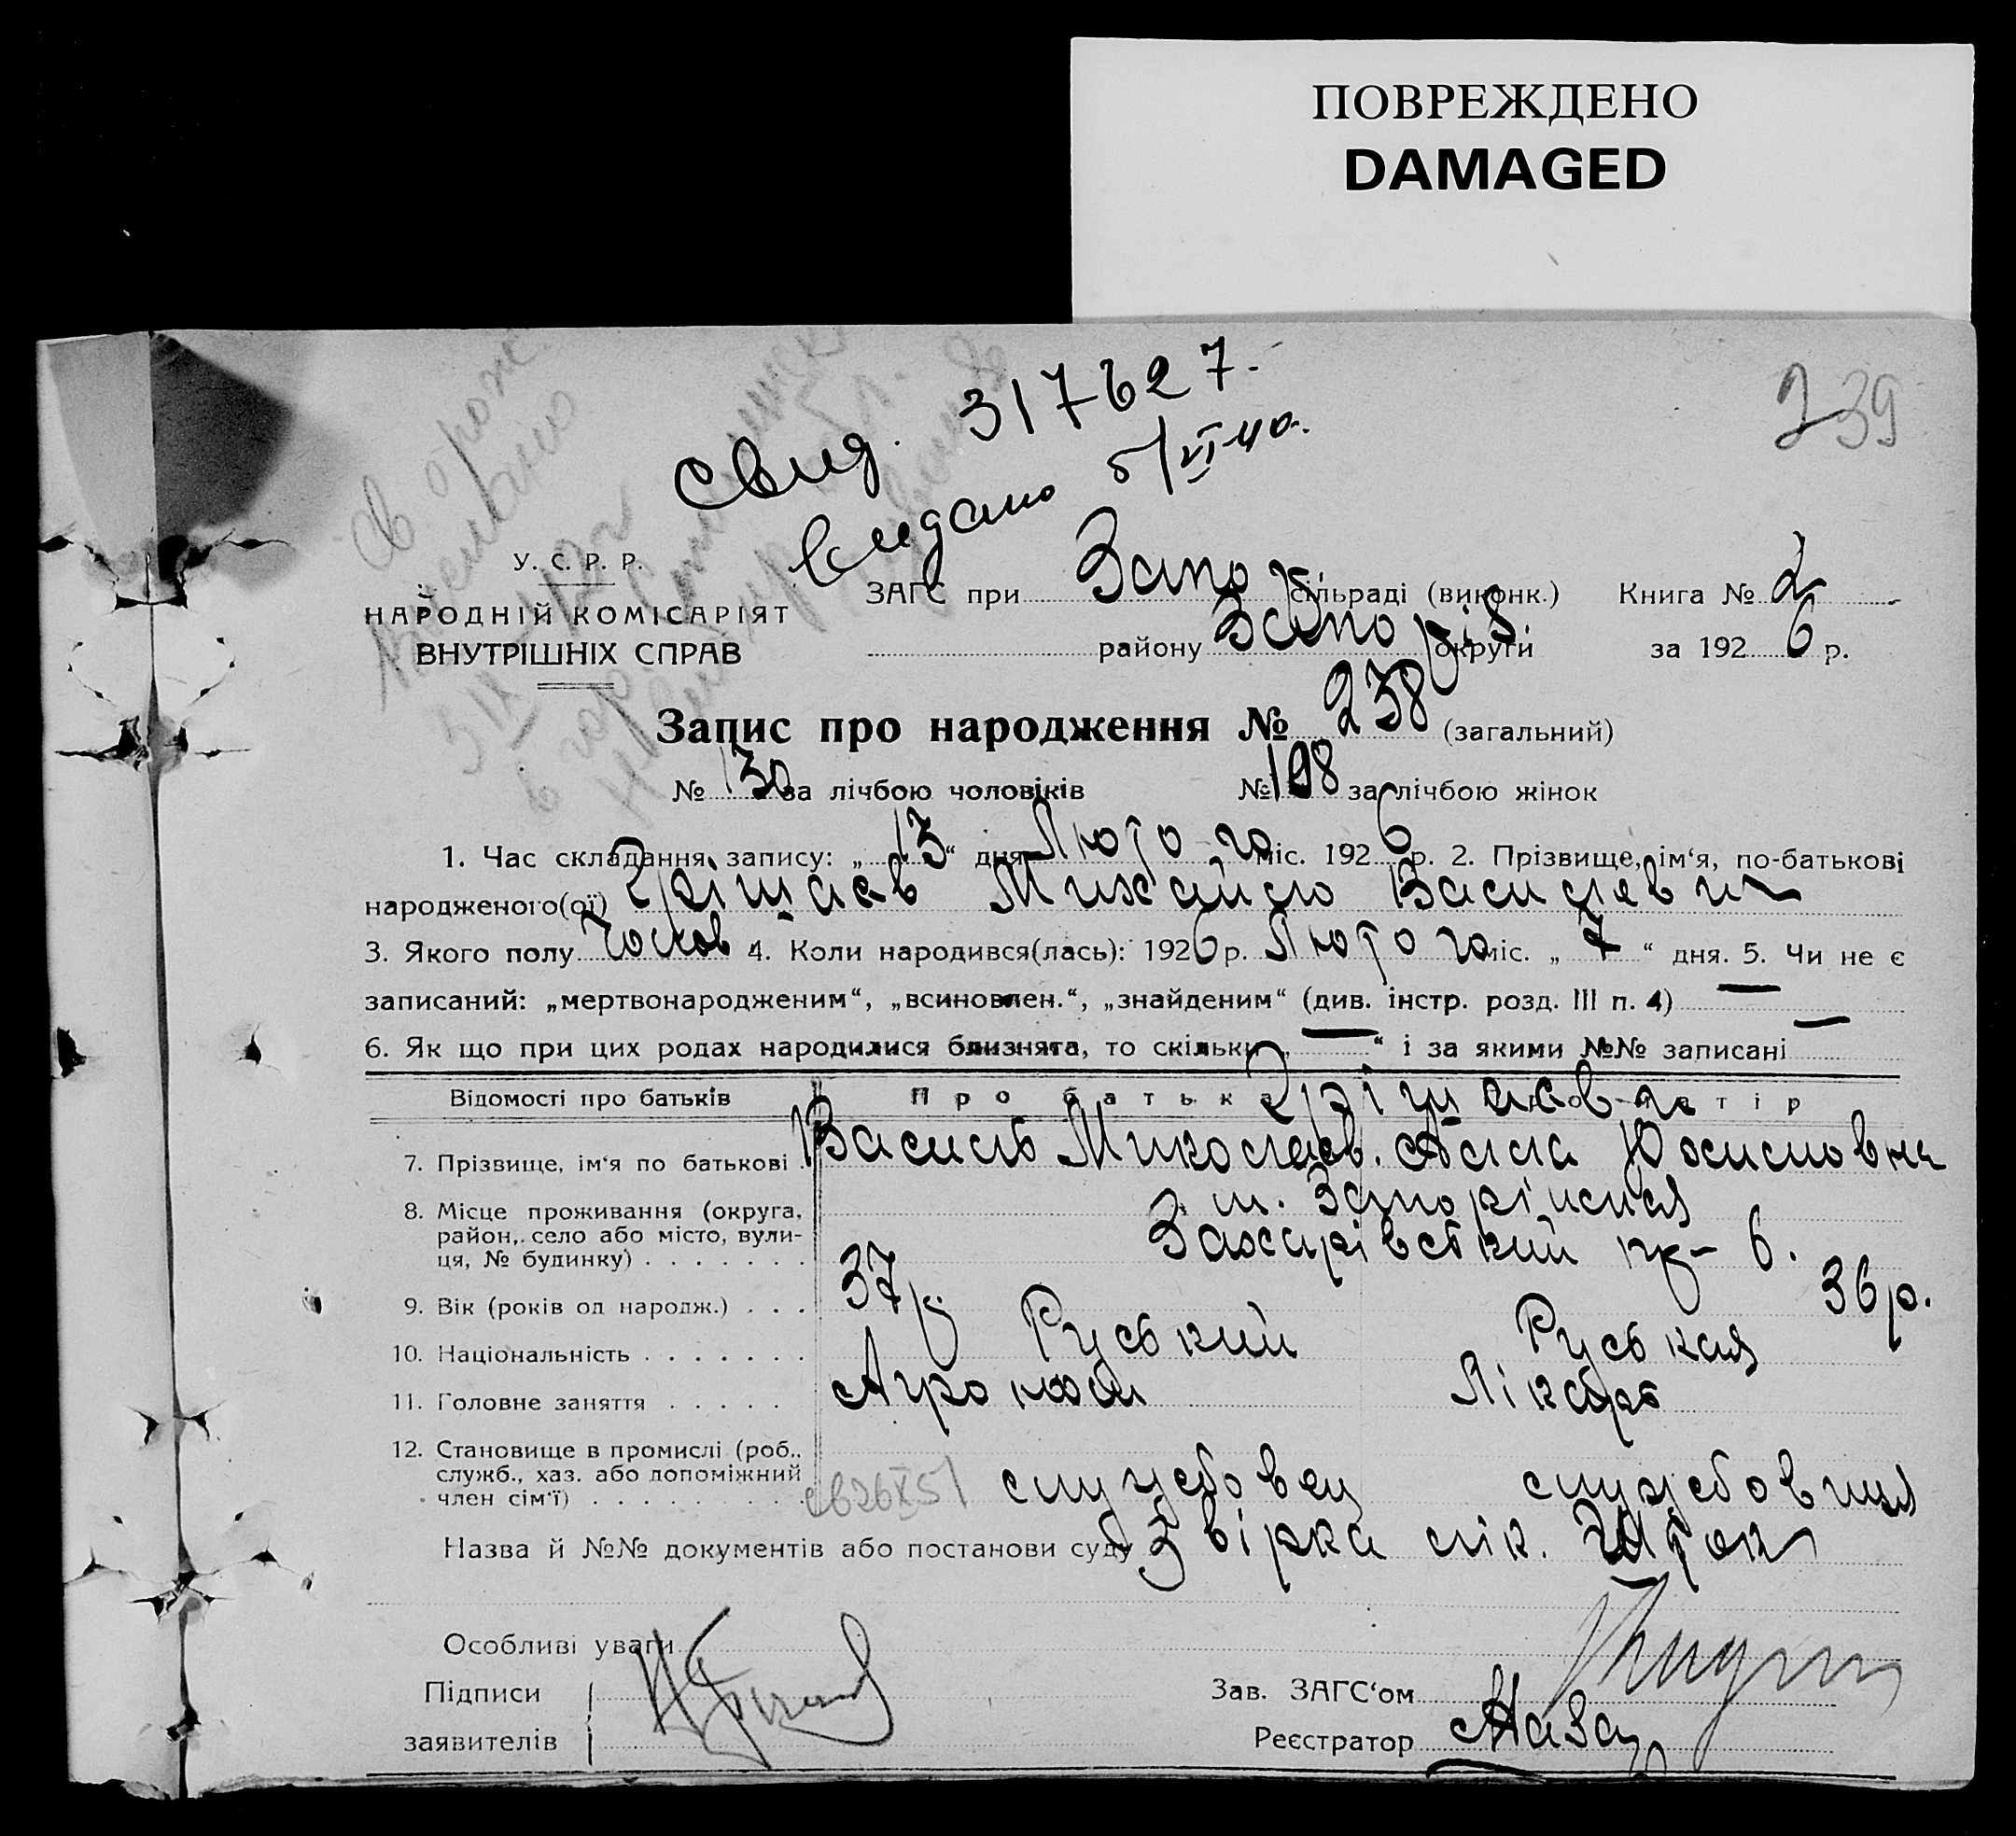 ПОВРЕЖДЕНО
DAMAGED
239
Свид. 317627.
Видано 5/VI-40.
У. С. Р. Р.
НАРОДНІЙ КОМІСАРІЯТ
ВНУТРІШНІХ СПРАВ
ЗАГС при Запо сільраді (виконк.) Книга № 2
району Запоріз. округи за 1926 р.
Запис про народження № 238 (загальний)
№ 130 за лічбою чоловіків № 108 за лічбою жінок
1. Час складання запису: „13“ дня Лютого міс. 1926 р. 2. Прізвище, ім‘я, по-батькові
народженого(ої) Грішаєв Михайло Василєвич
3. Якого полу Чолов 4. Коли народився(лась): 1926 р. Лютого міс. „7“ дня. 5. Чи не є
записаний: „мертвонародженим“, „всиновлен.“, „знайденим“ (див. інстр. розд. III п. 4) —
6. Як що при цих родах народилися близнята, то скільки „—“ і за якими №№ записані —
Відомості про батьків Про батька Про матір
Грішаєв а
7. Прізвище, ім‘я по батькові Василь Миколаєв. Алла Юхимовна
8. Місце проживання (округа, район, село або місто, вули-ця, № будинку) м. Запоріжжя
Захарівський 6.
9. Вік (років од народж.) 37 р. 36 р.
10. Національність Руський Руськая
11. Головне заняття Агроном Лікарь
12. Становище в промислі (роб., служб., хаз. або допоміжний член сім‘ї) св 26 X 51 службовец службовиця
Назва й №№ документів або постанови суду Звірка лік.
Особливі уваги
Підписи
заявителів
Зав. ЗАГС‘ом
Реєстратор